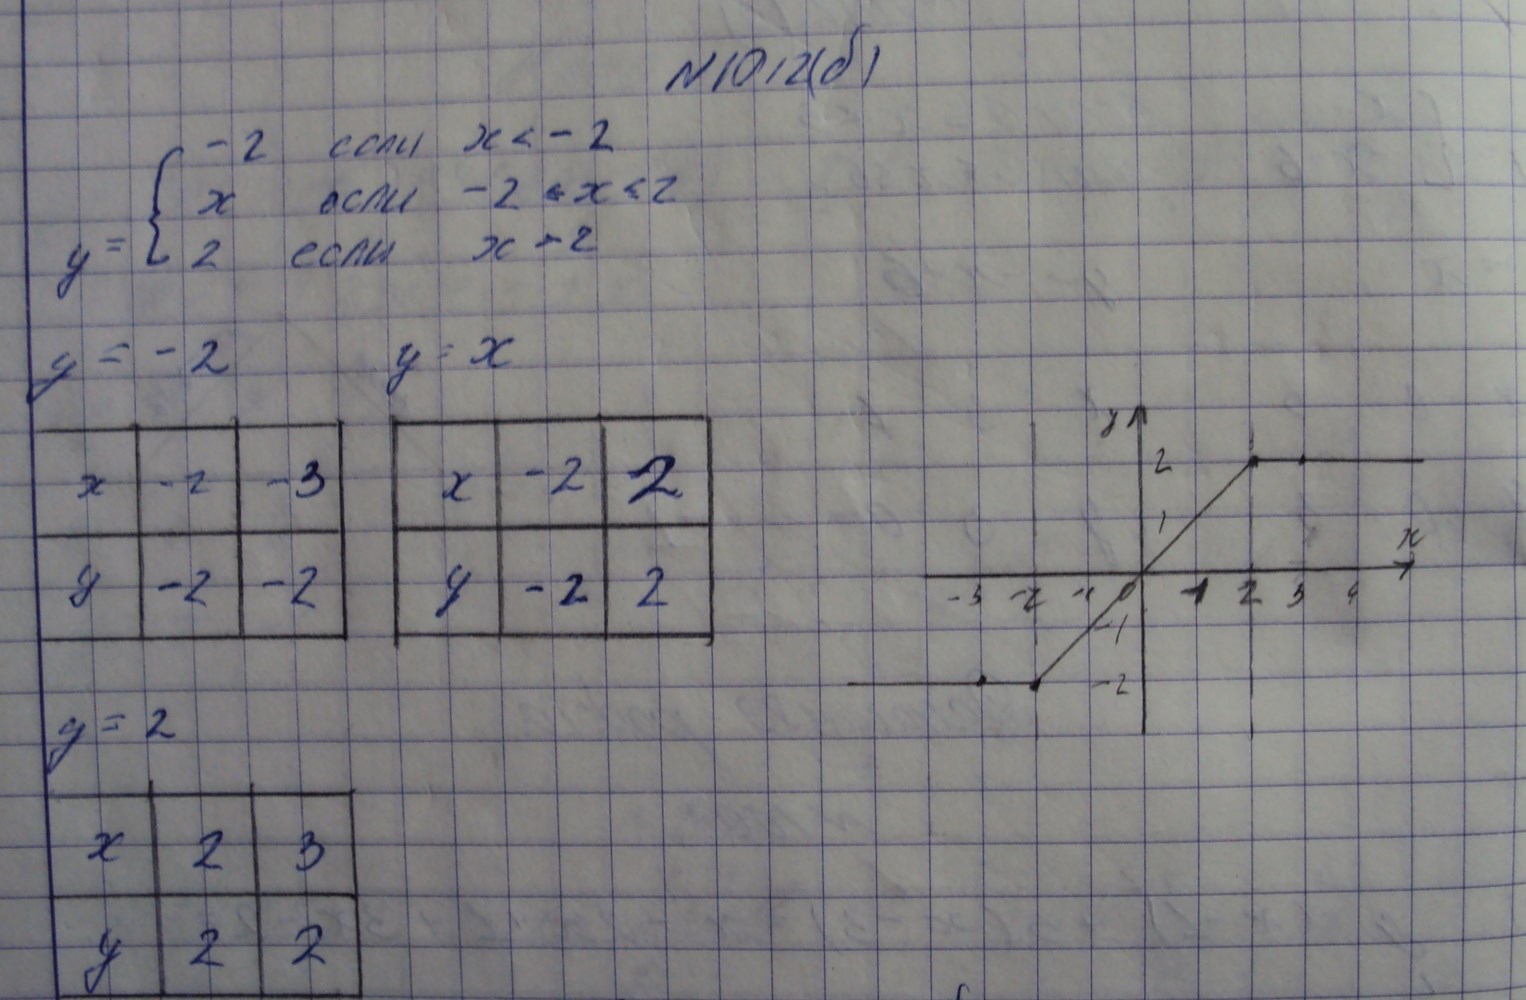 N1012(б)
y = { -2 если x < -2
x если -2 ≤ x ≤ 2
2 если x > 2
y = -2 y = x
x -2 -3
y -2 -2
x -2 2
y -2 2
y = 2
x 2 3
y 2 2
y
2
1
x
-3 -2 -1 0 1 2 3 4
-1
-2